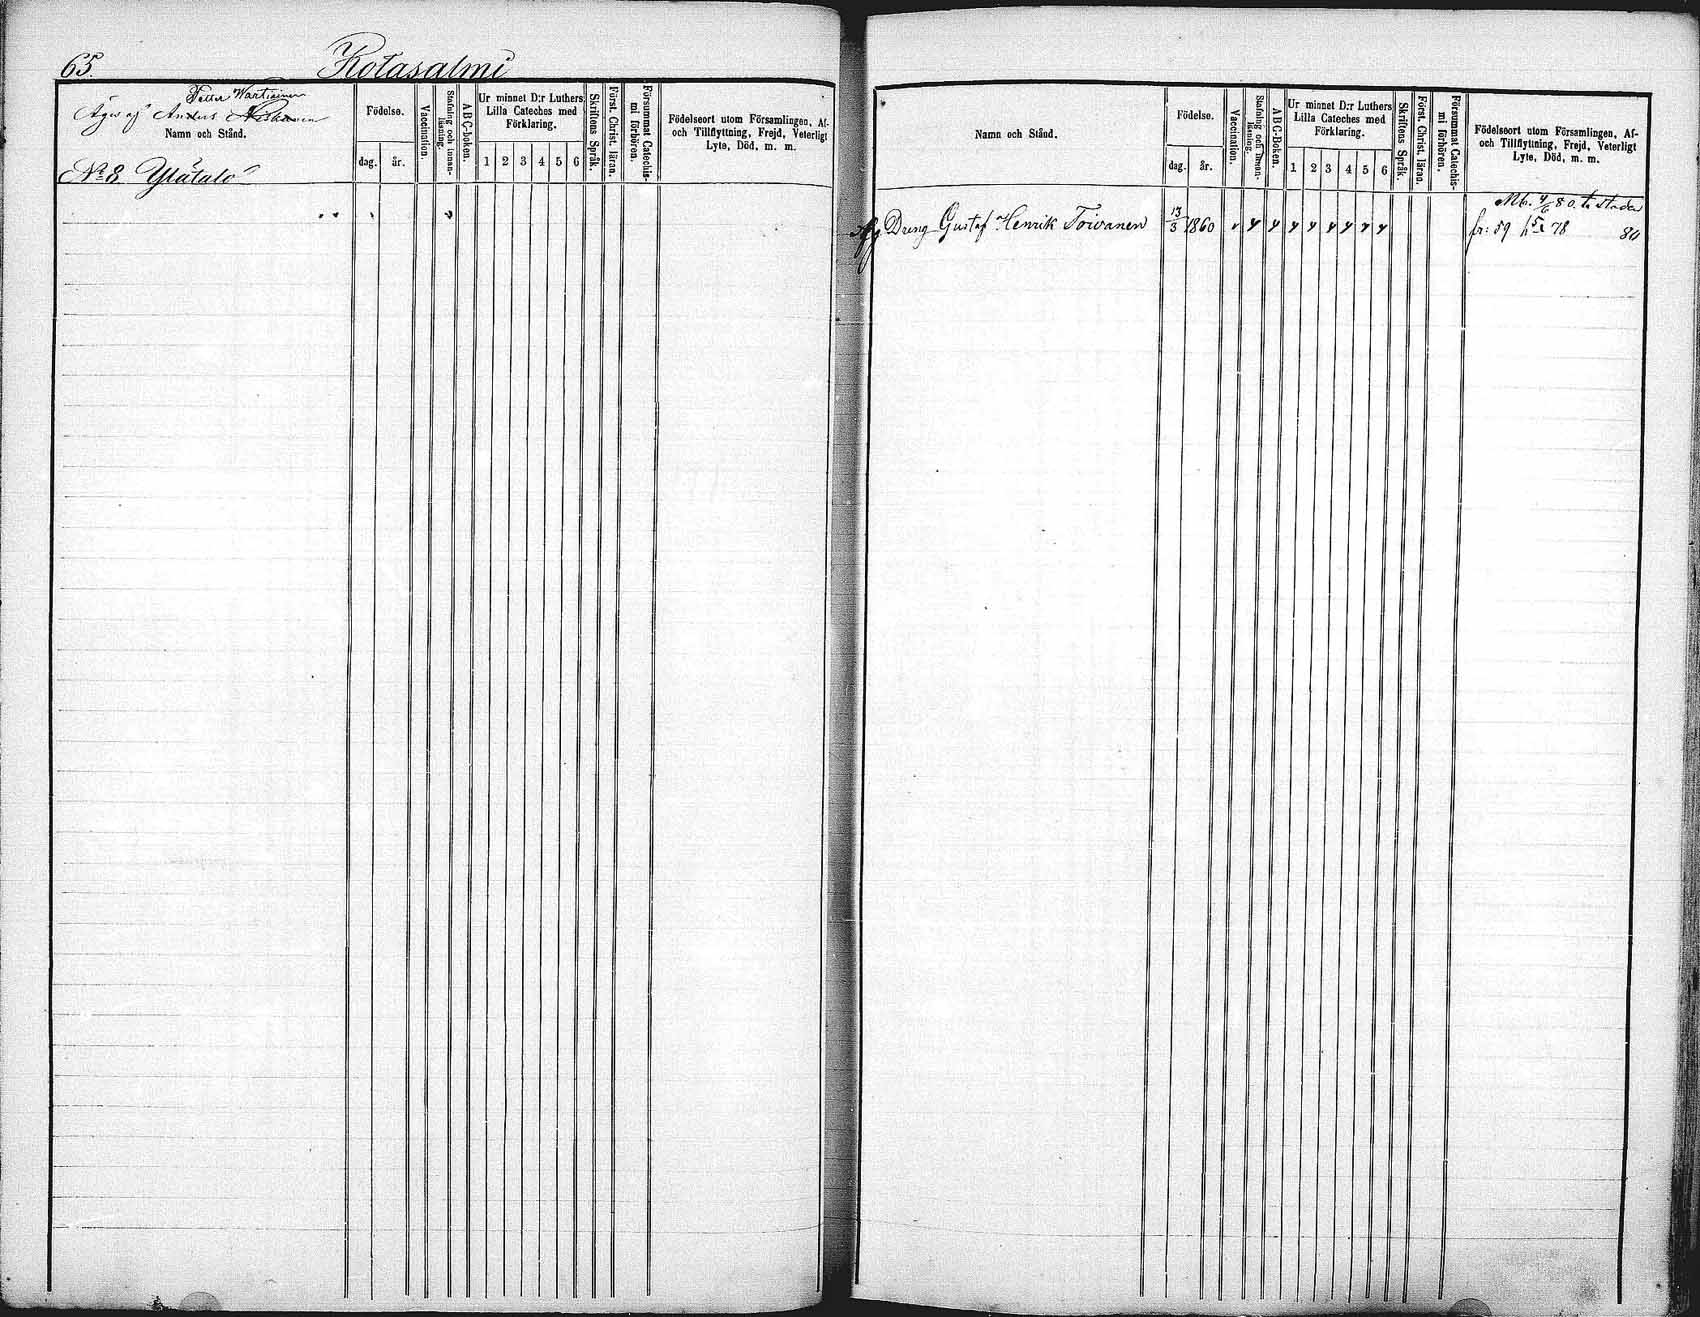 65. Kotasalmi
Petter Wartiainen
Äges af Anders
Namn och Stånd.
Födelse.
dag. år.
Vaccination.
Stafning och innan-
läsning.
ABC-Boken.
Ur minnet D:r Luthers
Lilla Cateches med
Förklaring.
1 2 3 4 5 6
Skriftens Språk.
Först. Christ. läran.
Försummat Catechis-
mi förhören.
Födelseort utom Församlingen, Af-
och Tillflyttning, Frejd, Veterligt
Lyte, Död, m. m.
No 8 Ylätalo
Namn och Stånd.
Födelse.
dag. år.
Vaccination.
Stafning och innan-
läsning.
ABC-Boken.
Ur minnet D:r Luthers
Lilla Cateches med
Förklaring.
1 2 3 4 5 6
Skriftens Språk.
Först. Christ. läran.
Försummat Catechis-
mi förhören.
Födelseort utom Församlingen, Af-
och Tillflyttning, Frejd, Veterligt
Lyte, Död, m. m.
Mb. 4/6 80 t. staden
Dreng Gustaf Henrik Toivanen 13/3 1860 fr: 59 78 80